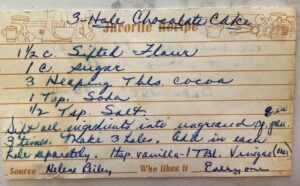 3-Hole Chocolate Cake
Favorite Recipe
1 1/2 c Sifted Flour
1 c. sugar
3 Heaping Tbls. cocoa
1 Tsp. Soda
1/2 Tsp. Salt
Sift all ingredients into ungreased pan
3 times. Make 3 holes. Add in each
hole separately. 1 tsp vanilla - 1 Tbl. Vinegar
Source Helene Bily Who likes it Everyone